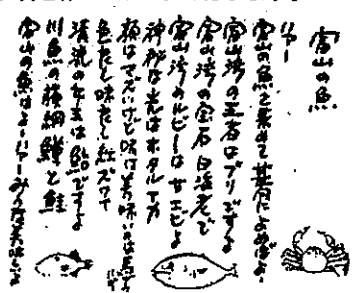 富山の魚
富山の魚を集めて甚句によめばよー
ハァー
富山湾の王者はブリですよ
富山湾の宝石白海老で
富山湾のルビーは甘エビよ
神秘な光はホタルイカ
顔はでかいけど味は美味いは
色よし味よし紅ズワイ
清流の女王は鮎ですよ
川魚の横綱鱒と鮭
富山の魚はよーハァーみんな美味しいよ